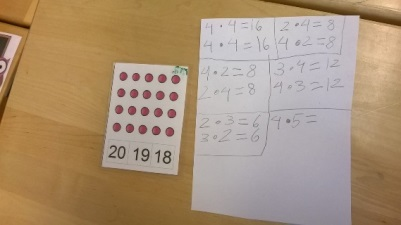 20 19 18
4 · 4 = 16
4 · 4 = 16
2 · 4 = 8
4 · 2 = 8
4 · 2 = 8
2 · 4 = 8
3 · 4 = 12
4 · 3 = 12
2 · 3 = 6
3 · 2 = 6
4 · 5 =